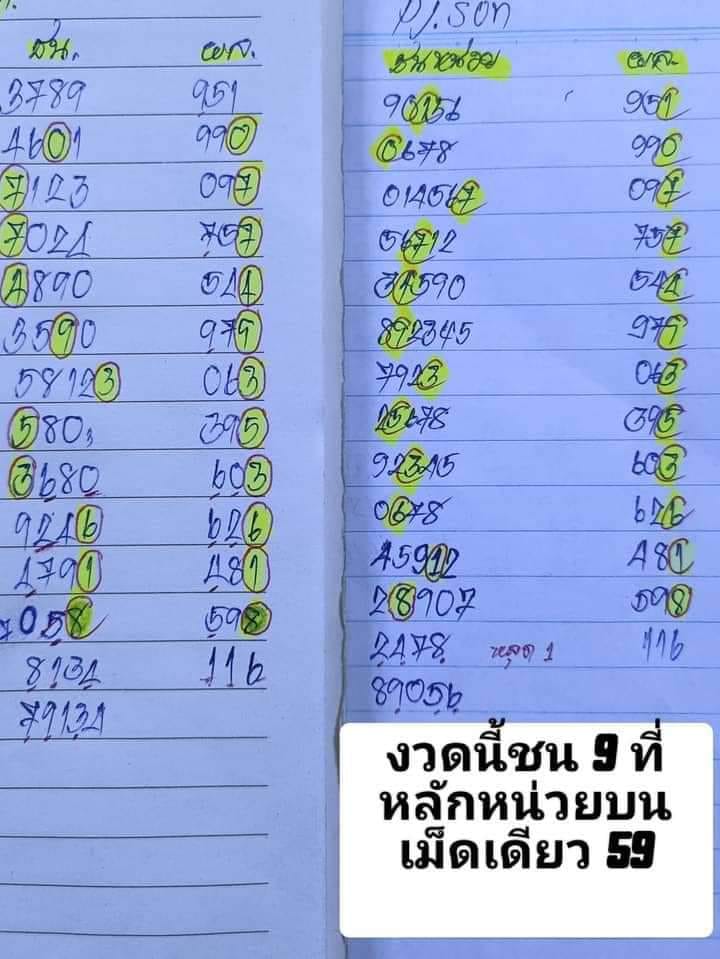 ชน. ผล.
3789 951
4601 990
7123 097
7024 757
4890 544
3590 979
58123 063
580 395
3680 603
9246 626
4791 481
7058 598
8134 116
79134
pj.son
ชนหน่วย ผล.
90156 951
0678 990
014567 097
56712 757
34590 544
892345 979
7923 063
25678 395
92345 603
0678 626
45912 481
28907 598
2478 หลุด 1 116
89056
งวดนี้ชน 9 ที่
หลักหน่วยบน
เม็ดเดียว 59